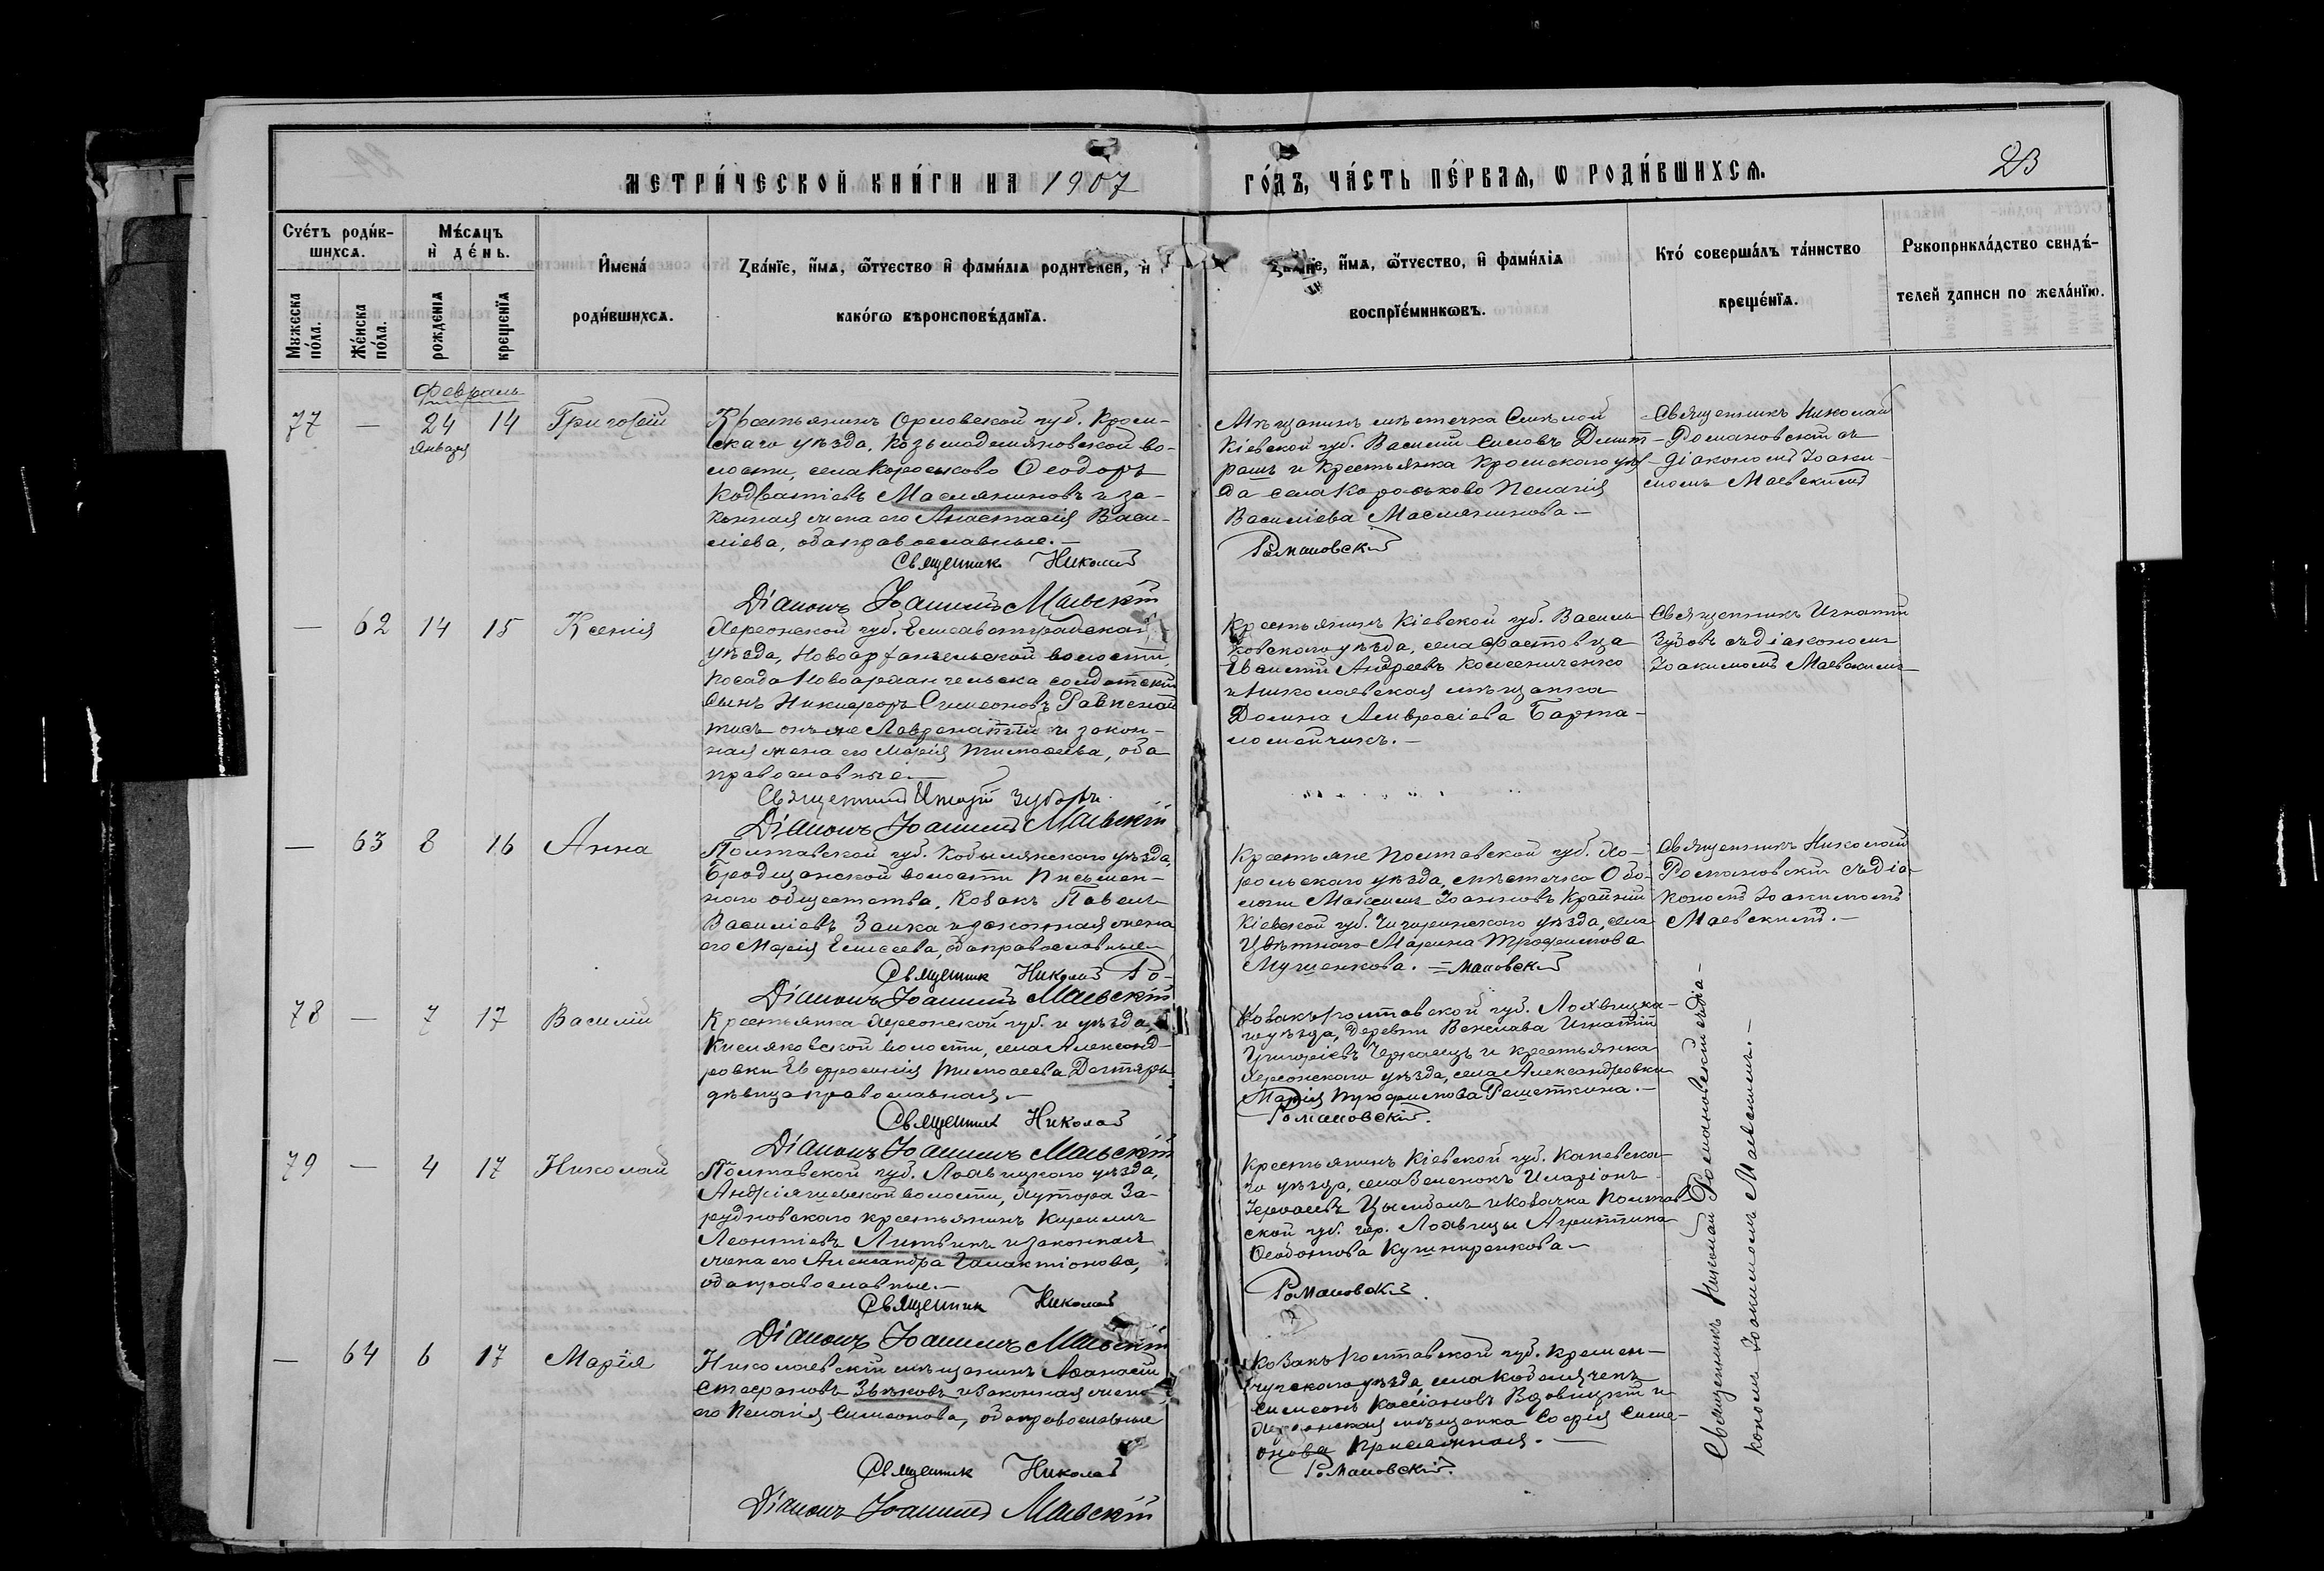 МЕТРИ́ЧЕСКОЙ КНИ́ГИ НА 1907
ГО́ДЪ, ЧА́СТЬ ПЕ́РВАЯ, Ѡ РОДИ́ВШИХСЯ.
23
Сче́тъ роди́в-
шихся.
Мѣ́сяцъ
и де́нь.
Имена́
роди́вшихся.
Зва́нїе, и́мя, ѻ́тчество и фами́лїя родителей, и
како́гѡ вѣроисповѣ́данїя.
и́мя, ѻ́тчество, и фами́лїя
воспрїе́мникѡвъ.
Кто́ соверша́лъ та́инство
креще́нїя.
Рукоприкла́дство свидѣ́-
телей записи по жела́нїю.
Мужеска
по́ла.
Же́нска
по́ла.
рожденїя
крещенїя
Февраль
77 — 24 14 Григорій
Января
Крестьянинъ Орловской губ. Кром-
скаго уѣзда, Козьмодемьяновской во-
лости, села Короськово Ѳеодоръ
Кодратіевъ Маслениковъ и за-
конная жена его Анастасія Васи-
ліева, оба православные.—
Священникъ Николай
Діаконъ Іоакимъ Маевскій
Мѣщанинъ мѣстечка Смѣлой
Кіевской губ. Василій Симовъ Дмит-
рашъ и крестьянка Кромскаго уѣз-
да села Короськово Пелагія
Василіева Масленикова.—
Романовскій
Священникъ Николай
Романовскій съ
діакономъ Іоаки-
момъ Маевскимъ
— 62 14 15 Ксенія
Херсонской губ. Елисаветградскаго
уѣзда, Новоархангельской волости,
посада Новоархангельска солдатскій
сынъ Никифоръ Симеоновъ
онъ же и закон-
ная жена его Марія Тимоѳеева, оба
православные.—
Священникъ Игнатій Зубовъ
Діаконъ Іоакимъ Маевскій
Крестьянинъ Кіевской губ. Василь-
ковскаго уѣзда, села Фастовца
Евсигній Андреевъ Колесниченко
и Николаевская мѣщанка
Домна Амвросіева Барта-
ломейчикъ.—
Священникъ Игнатій
Зубовъ съ діакономъ
Іоакимомъ Маевскимъ
— 63 8 16 Анна
Полтавской губ. Кобылякскаго уѣзда,
Бродщанской волости Письмен-
наго общества, козакъ Павелъ
Василіевъ Заика и законная жена
его Марія Елисеева, оба православные
Священникъ Николай Ро-
Діаконъ Іоакимъ Маевскій
Крестьяне Полтавской губ. Хо-
рольскаго уѣзда, мѣстечка Обо-
лони Максимъ Іоанновъ Крайній
Кіевской губ. Чигиринскаго уѣзда, села
Цвѣтнаго Марина Трофимова
Мушенкова. = мановскій
Священникъ Николай
Романовскій съ діа-
кономъ Іоакимомъ
Маевскимъ.—
78 — 7 17 Василій
Крестьянка Херсонской губ. и уѣзда,
Кисляковской волости, села Александ-
ровки Евфросинія Тимоѳеева Дегтярь
дѣвица православная.—
Священникъ Николай
Діаконъ Іоакимъ Маевскій
Козакъ Полтавской губ. Лохвицка-
го уѣзда, деревни Венслава Игнатій
Григоріевъ Черкасецъ и крестьянка
Херсонскаго уѣзда, села Александровки
Марія Трофимова Решеткина.—
Романовскій.
79 — 4 17 Николай
Полтавской губ. Лохвицкаго уѣзда,
Андріяшевской волости, хутора За-
рудновскаго крестьянинъ Кириллъ
Леонтіевъ Литвинъ и законная
жена его Александра Галактіонова,
оба православные.—
Священникъ Николай
Діаконъ Іоакимъ Маевскій
Крестьянинъ Кіевской губ. Каневска-
го уѣзда, села Зеленокъ Иларіонъ
Цымбалъ и козачка Полтав-
ской губ. гор. Лохвицы Агриппина
Ѳеодотова Кушниренкова.—
Романовскій.
Священникъ Николай Романовскій съ діа-
кономъ Іоакимомъ Маевскимъ.—
— 64 6 17 Марія
Николаевскій мѣщанинъ Аѳанасій
Стефановъ Звѣковъ и законная жена
его Пелагія Симеонова, оба православные
Священникъ Николай
Діаконъ Іоакимъ Маевскій
Козакъ Полтавской губ. Кремен-
чугскаго уѣзда, села Кобелячекъ
Симеонъ Кассіановъ Вдовицкій и
Херсонская мѣщанка Софія Симе-
онова Присяжная.—
Романовскій.